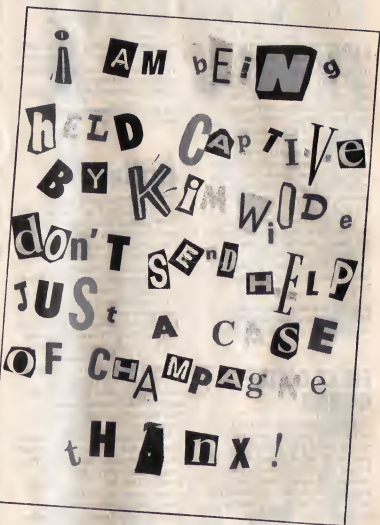 i AM bEiNg
hELD CApTIVe
BY KiM WilDe
dOn'T SEnD HELP
JUSt A CASE
OF CHAMPAgNe
tHAnX!